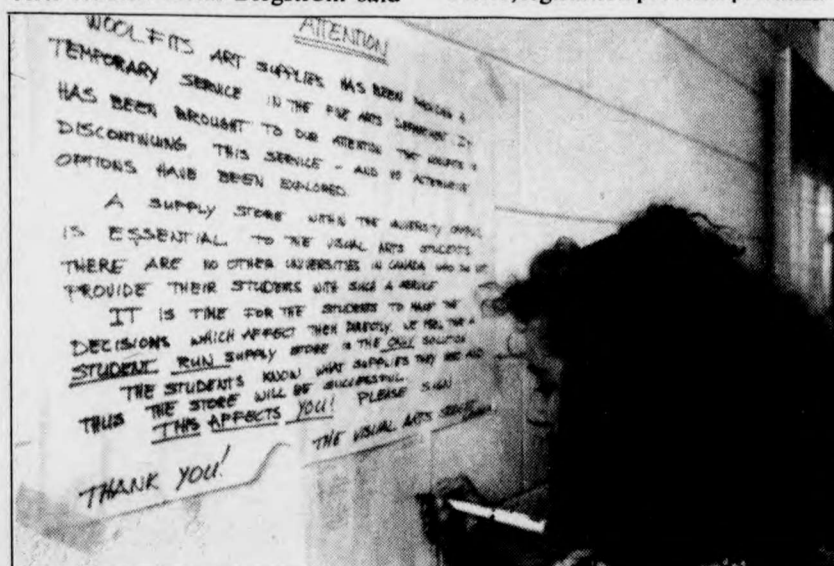 Bergstrom said
ATTENTION
WOOLFITS ART SUPPLIES HAS BEEN PROVIDING A
TEMPORARY SERVICE IN THE FINE ARTS DEPARTMENT. IT
HAS BEEN BROUGHT TO OUR ATTENTION THAT WOOLFITS IS
DISCONTINUING THIS SERVICE - AND NO ALTERNATIVE
OPTIONS HAVE BEEN EXPLORED.
A SUPPLY STORE WITHIN THE UNIVERSITY CAMPUS
IS ESSENTIAL TO THE VISUAL ARTS STUDENTS
THERE ARE NO OTHER UNIVERSITIES IN CANADA WHO DO NOT
PROVIDE THEIR STUDENTS WITH SUCH A SERVICE
IT IS TIME FOR THE STUDENTS TO MAKE THE
DECISIONS WHICH AFFECT THEM DIRECTLY. WE FEEL THAT A
STUDENT RUN SUPPLY STORE IS THE ONLY SOLUTION
THE STUDENTS KNOW WHAT SUPPLIES THEY NEED AND
THUS THE STORE WILL BE SUCCESSFUL.
THIS AFFECTS YOU! PLEASE SIGN
THANK YOU!
THE VISUAL ARTS